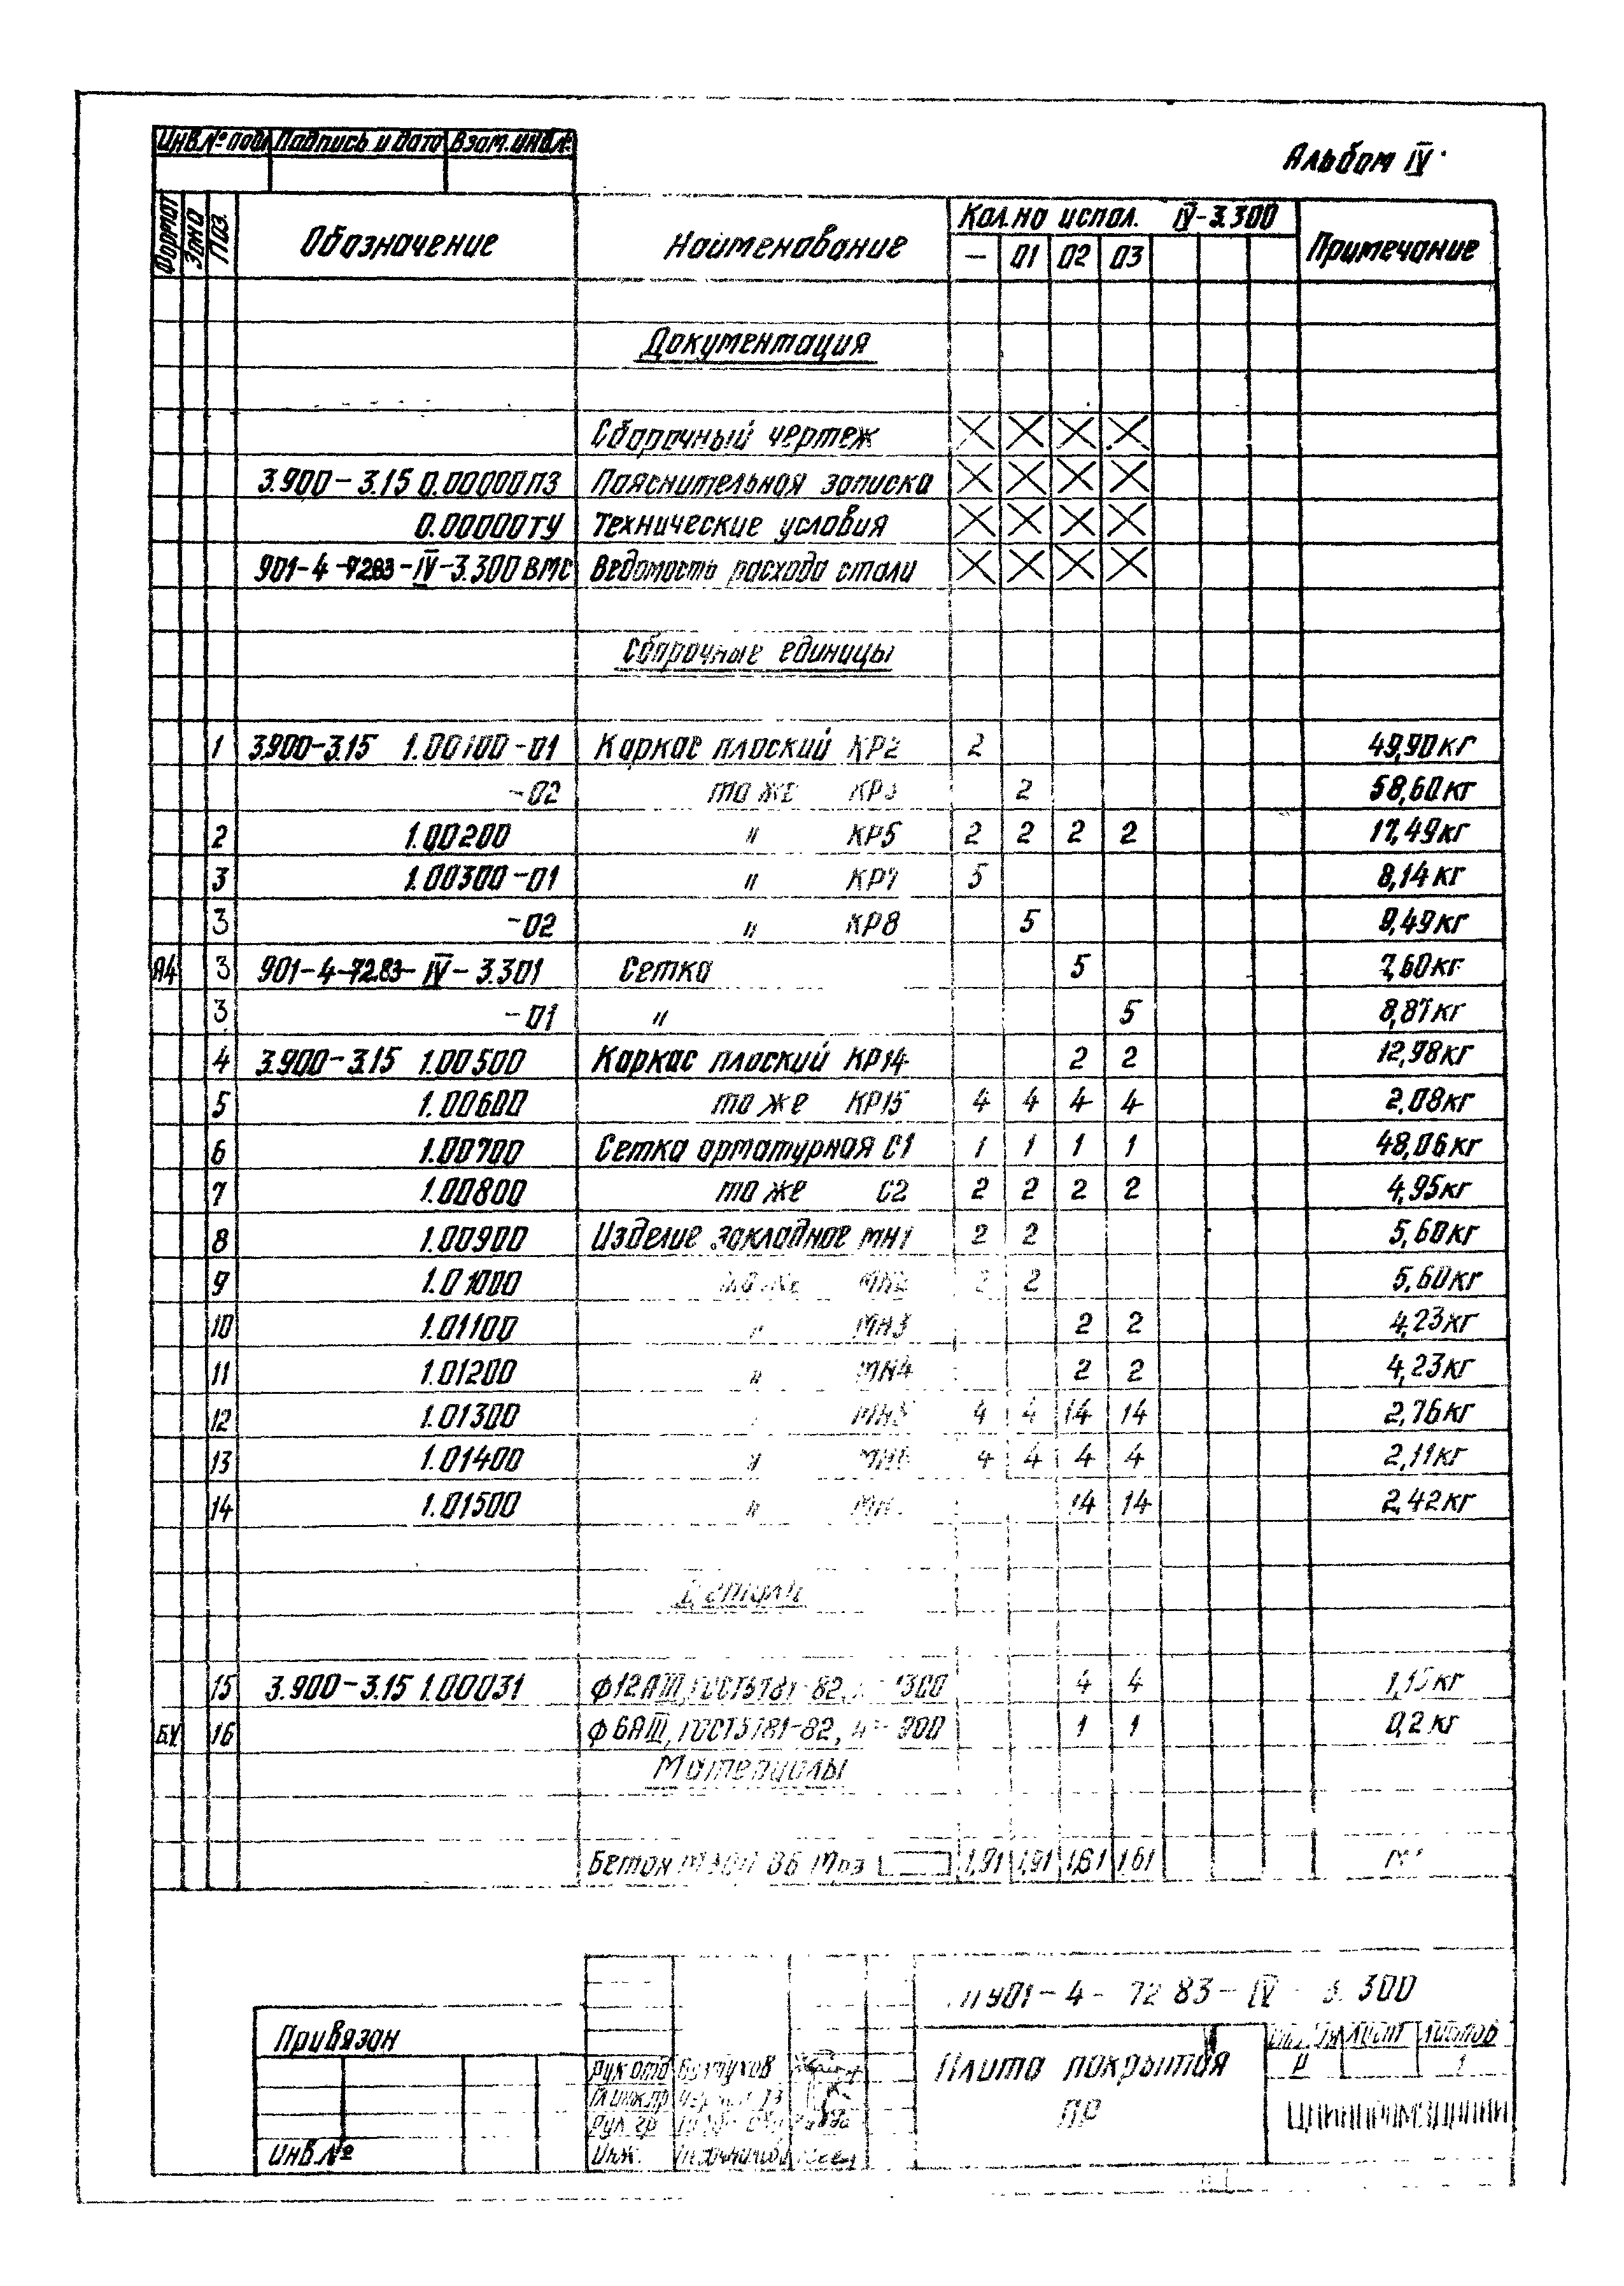 Инв.№ подл Подпись и дата Взам.инв.№
Альбом IV
Формат Зона Поз. Обозначение Наименование Кол.на испол. IV-3.300 Примечание
— 01 02 03
Документация
Сборочный чертеж
3.900-3.15 0.00000ПЗ Пояснительная записка
0.00000ТУ Технические условия
901-4-72.83-IV-3.300 ВМС Ведомость расхода стали
Сборочные единицы
1 3.900-3.15 1.00100-01 Каркас плоский КР2 2 49,90кг
-02 то же КР3 2 58,60кг
2 1.00200 " КР5 2 2 2 2 17,49кг
3 1.00300-01 " КР7 5 8,14кг
3 -02 " КР8 5 9,49кг
А4 3 901-4-72.83-IV-3.301 Сетка 5 7,60кг
3 -01 " 5 8,87кг
4 3.900-3.15 1.00500 Каркас плоский КР14 2 2 12,98кг
5 1.00600 то же КР15 4 4 4 4 2,08кг
6 1.00700 Сетка арматурная С1 1 1 1 1 48,06кг
7 1.00800 то же С2 2 2 2 2 4,95кг
8 1.00900 Изделие закладное МН1 2 2 5,60кг
9 1.01000 то же МН2 2 2 5,60кг
10 1.01100 " МН3 2 2 4,23кг
11 1.01200 " МН4 2 2 4,23кг
12 1.01300 " МН5 4 4 14 14 2,76кг
13 1.01400 " МН6 4 4 4 4 2,11кг
14 1.01500 " МН 14 14 2,42кг
Детали
15 3.900-3.15 1.00031 Ф12АIII, ГОСТ5781-82, 1300 4 4 1,15кг
БЧ 16 Ф6АIII, ГОСТ5781-82, 900 1 1 0,2кг
Материалы
Бетон М300 В6 Мрз 1,91 1,91 1,61 1,61
901-4-72.83-IV-3.300
Привязан
Лист Листов
Р 1
Рук.отд
Плита покрытия
ПР
Гл.инж.пр
Рук.гр
ЦНИИПРОМЗДАНИЙ
Инв.№ Инж.